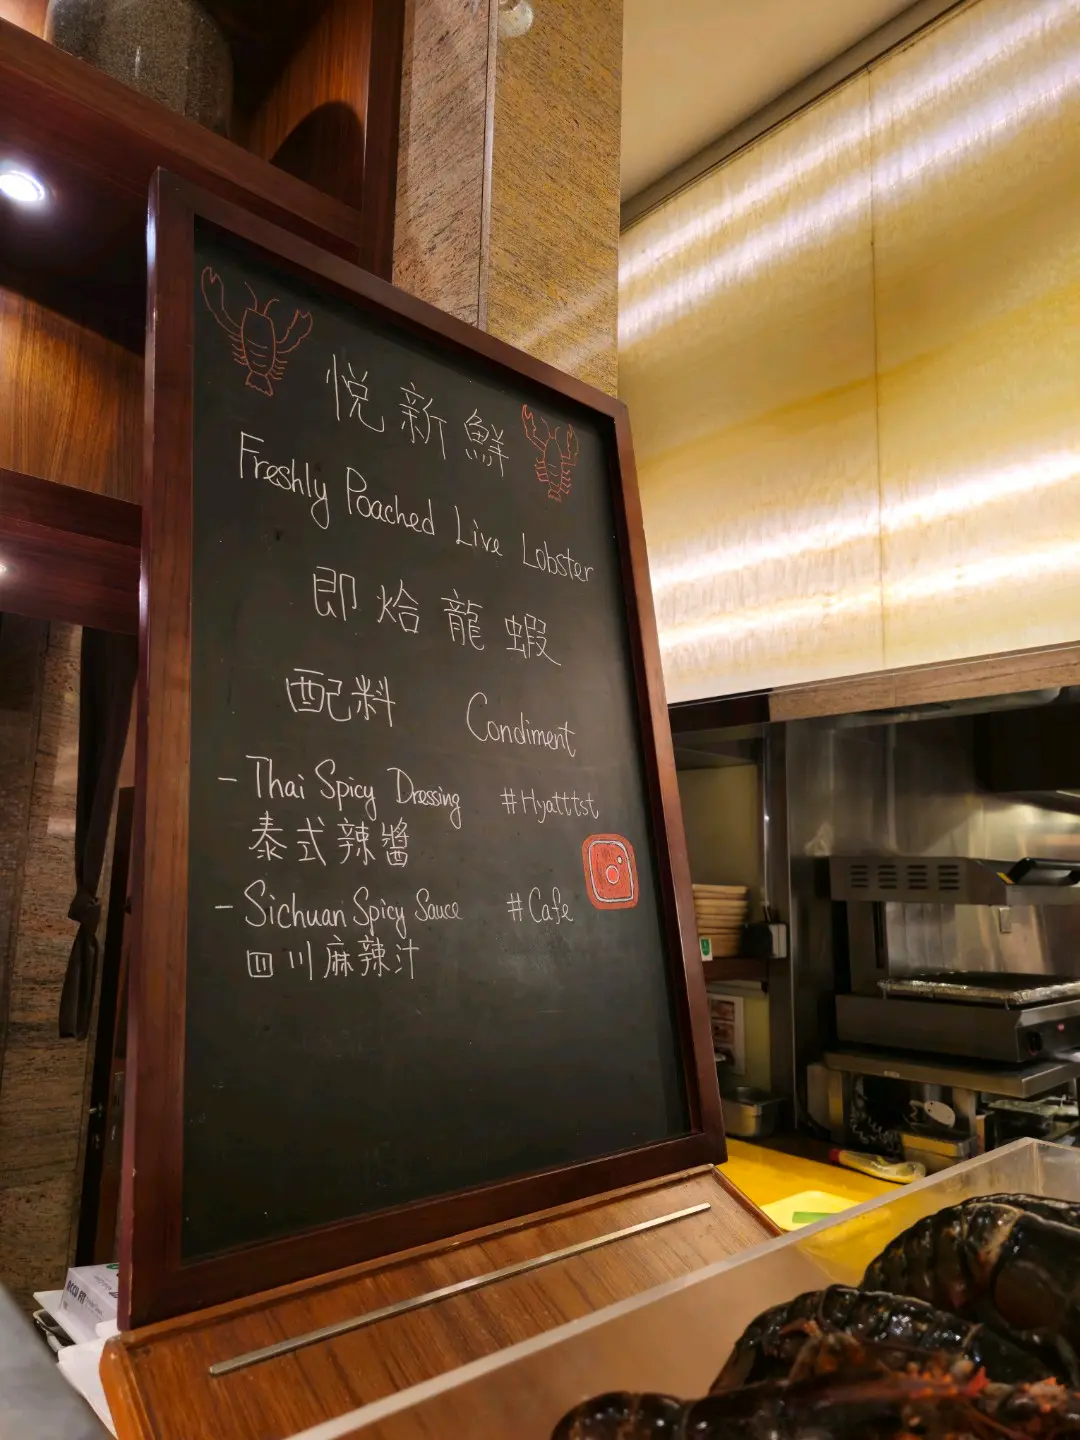 悦新鮮
Freshly Poached Live Lobster
即烚龍蝦
配料 Condiment
- Thai Spicy Dressing #Hyatttst
泰式辣醬
- Sichuan Spicy Sauce #Cafe
四川麻辣汁
ACCU FIT